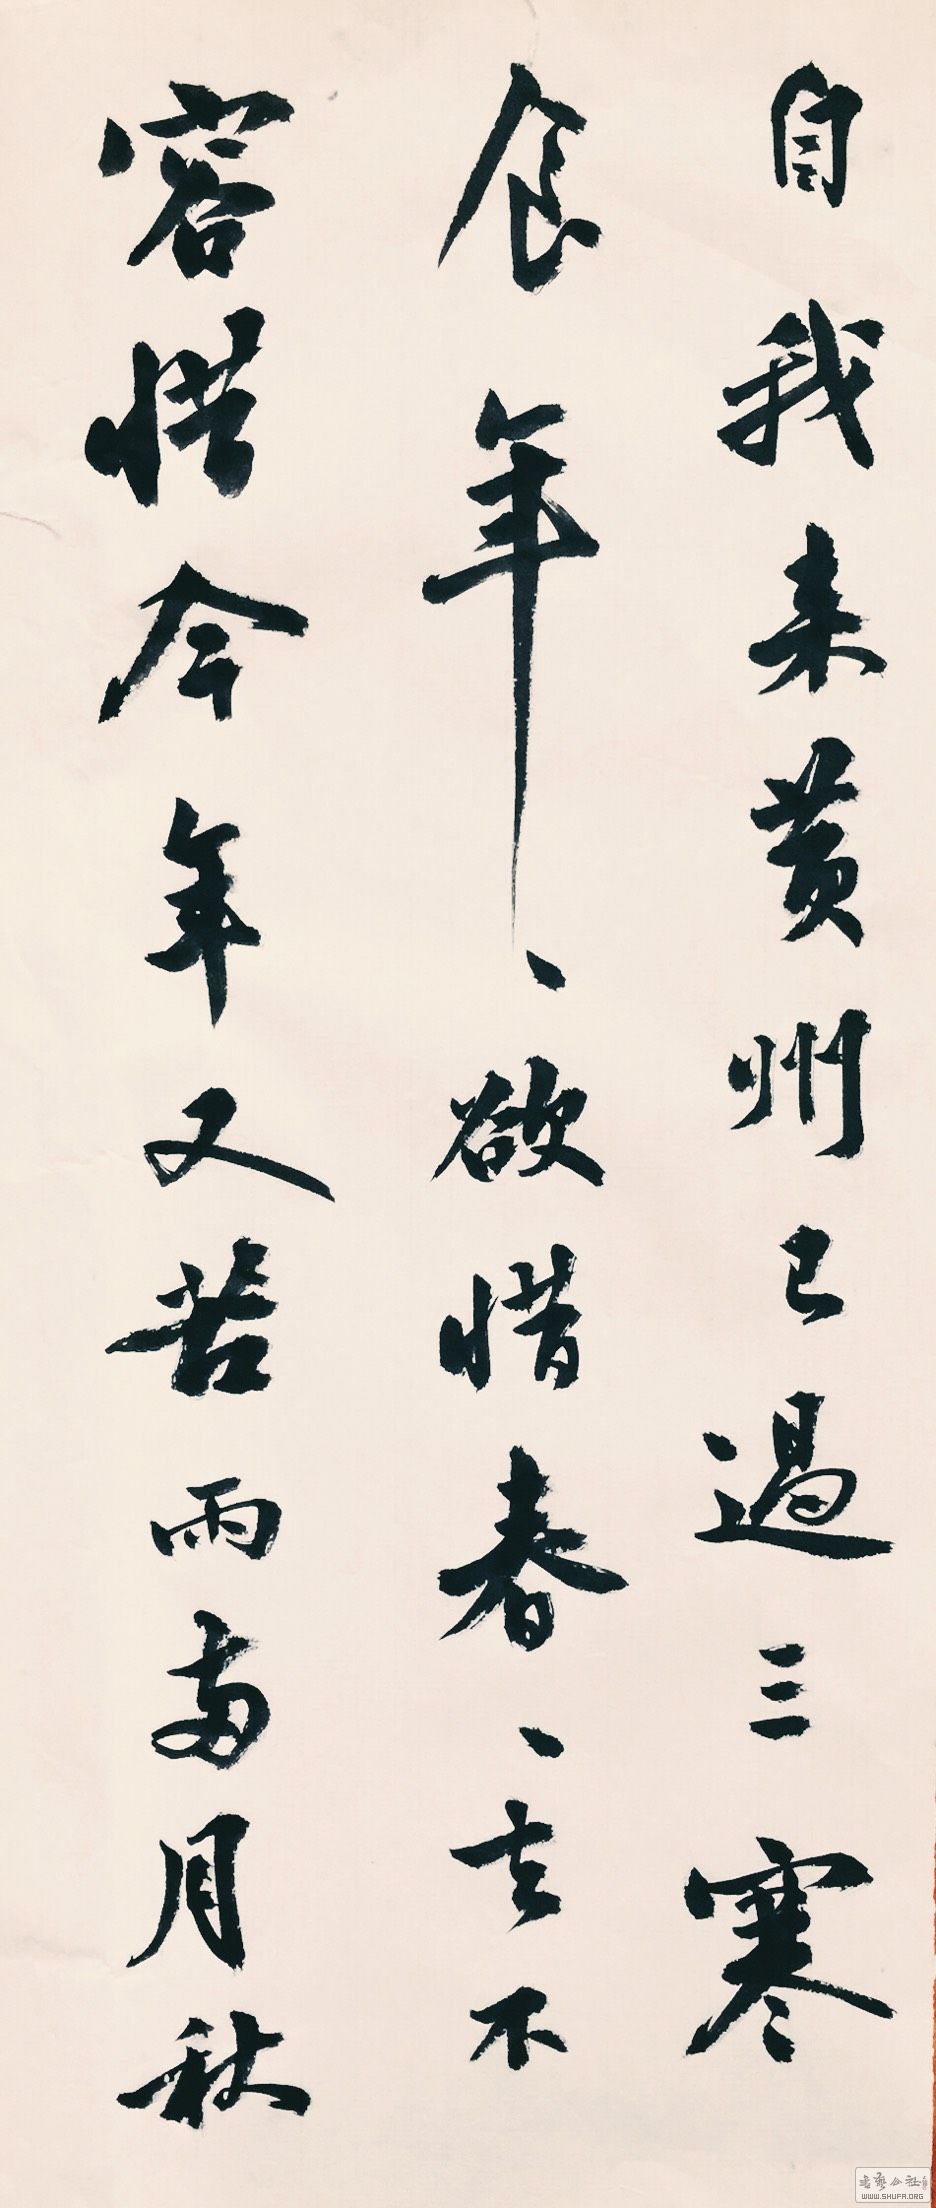 自我来黄州已过三寒
食年、欲惜春、去不
容惜今年又苦雨两月秋
書藝公社
WWW.SHUFA.ORG